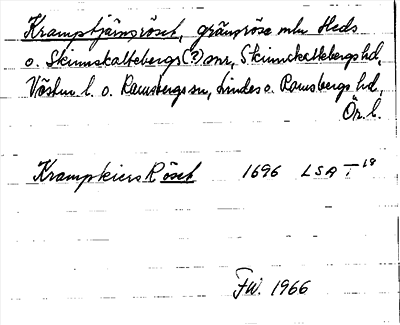 Kramptjärnsröset, gränsröse mln Heds
o. Skinnskattebergs (?) snr, Skinnskattebergs hd,
Västm. l. o. Ramsbergs sn, Lindes o. Ramsbergs hd,
Ör. l.
Krampkiers Röset 1696 LSA T 18
FW. 1966